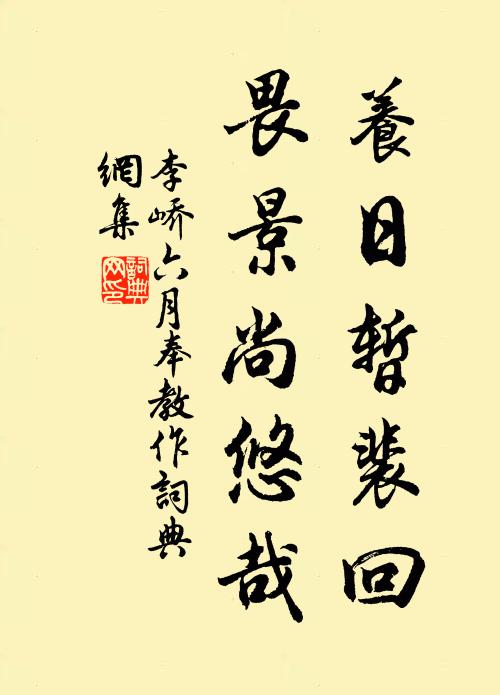 養日暫裴回
畏景尚悠哉
李嶠六月奉教作詞典
網集
詞典
网印